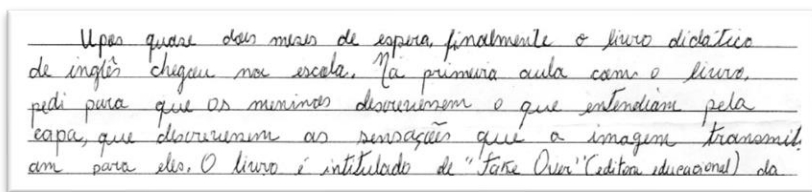 Após quase dois meses de espera, finalmente o livro didático
de inglês chegou na escola. Na primeira aula com o livro,
pedi para que os meninos descrevessem o que entendiam pela
capa, que descrevessem as sensações que a imagem transmit
am para eles. O livro é intitulado de "Take Over" (editora educacional) da